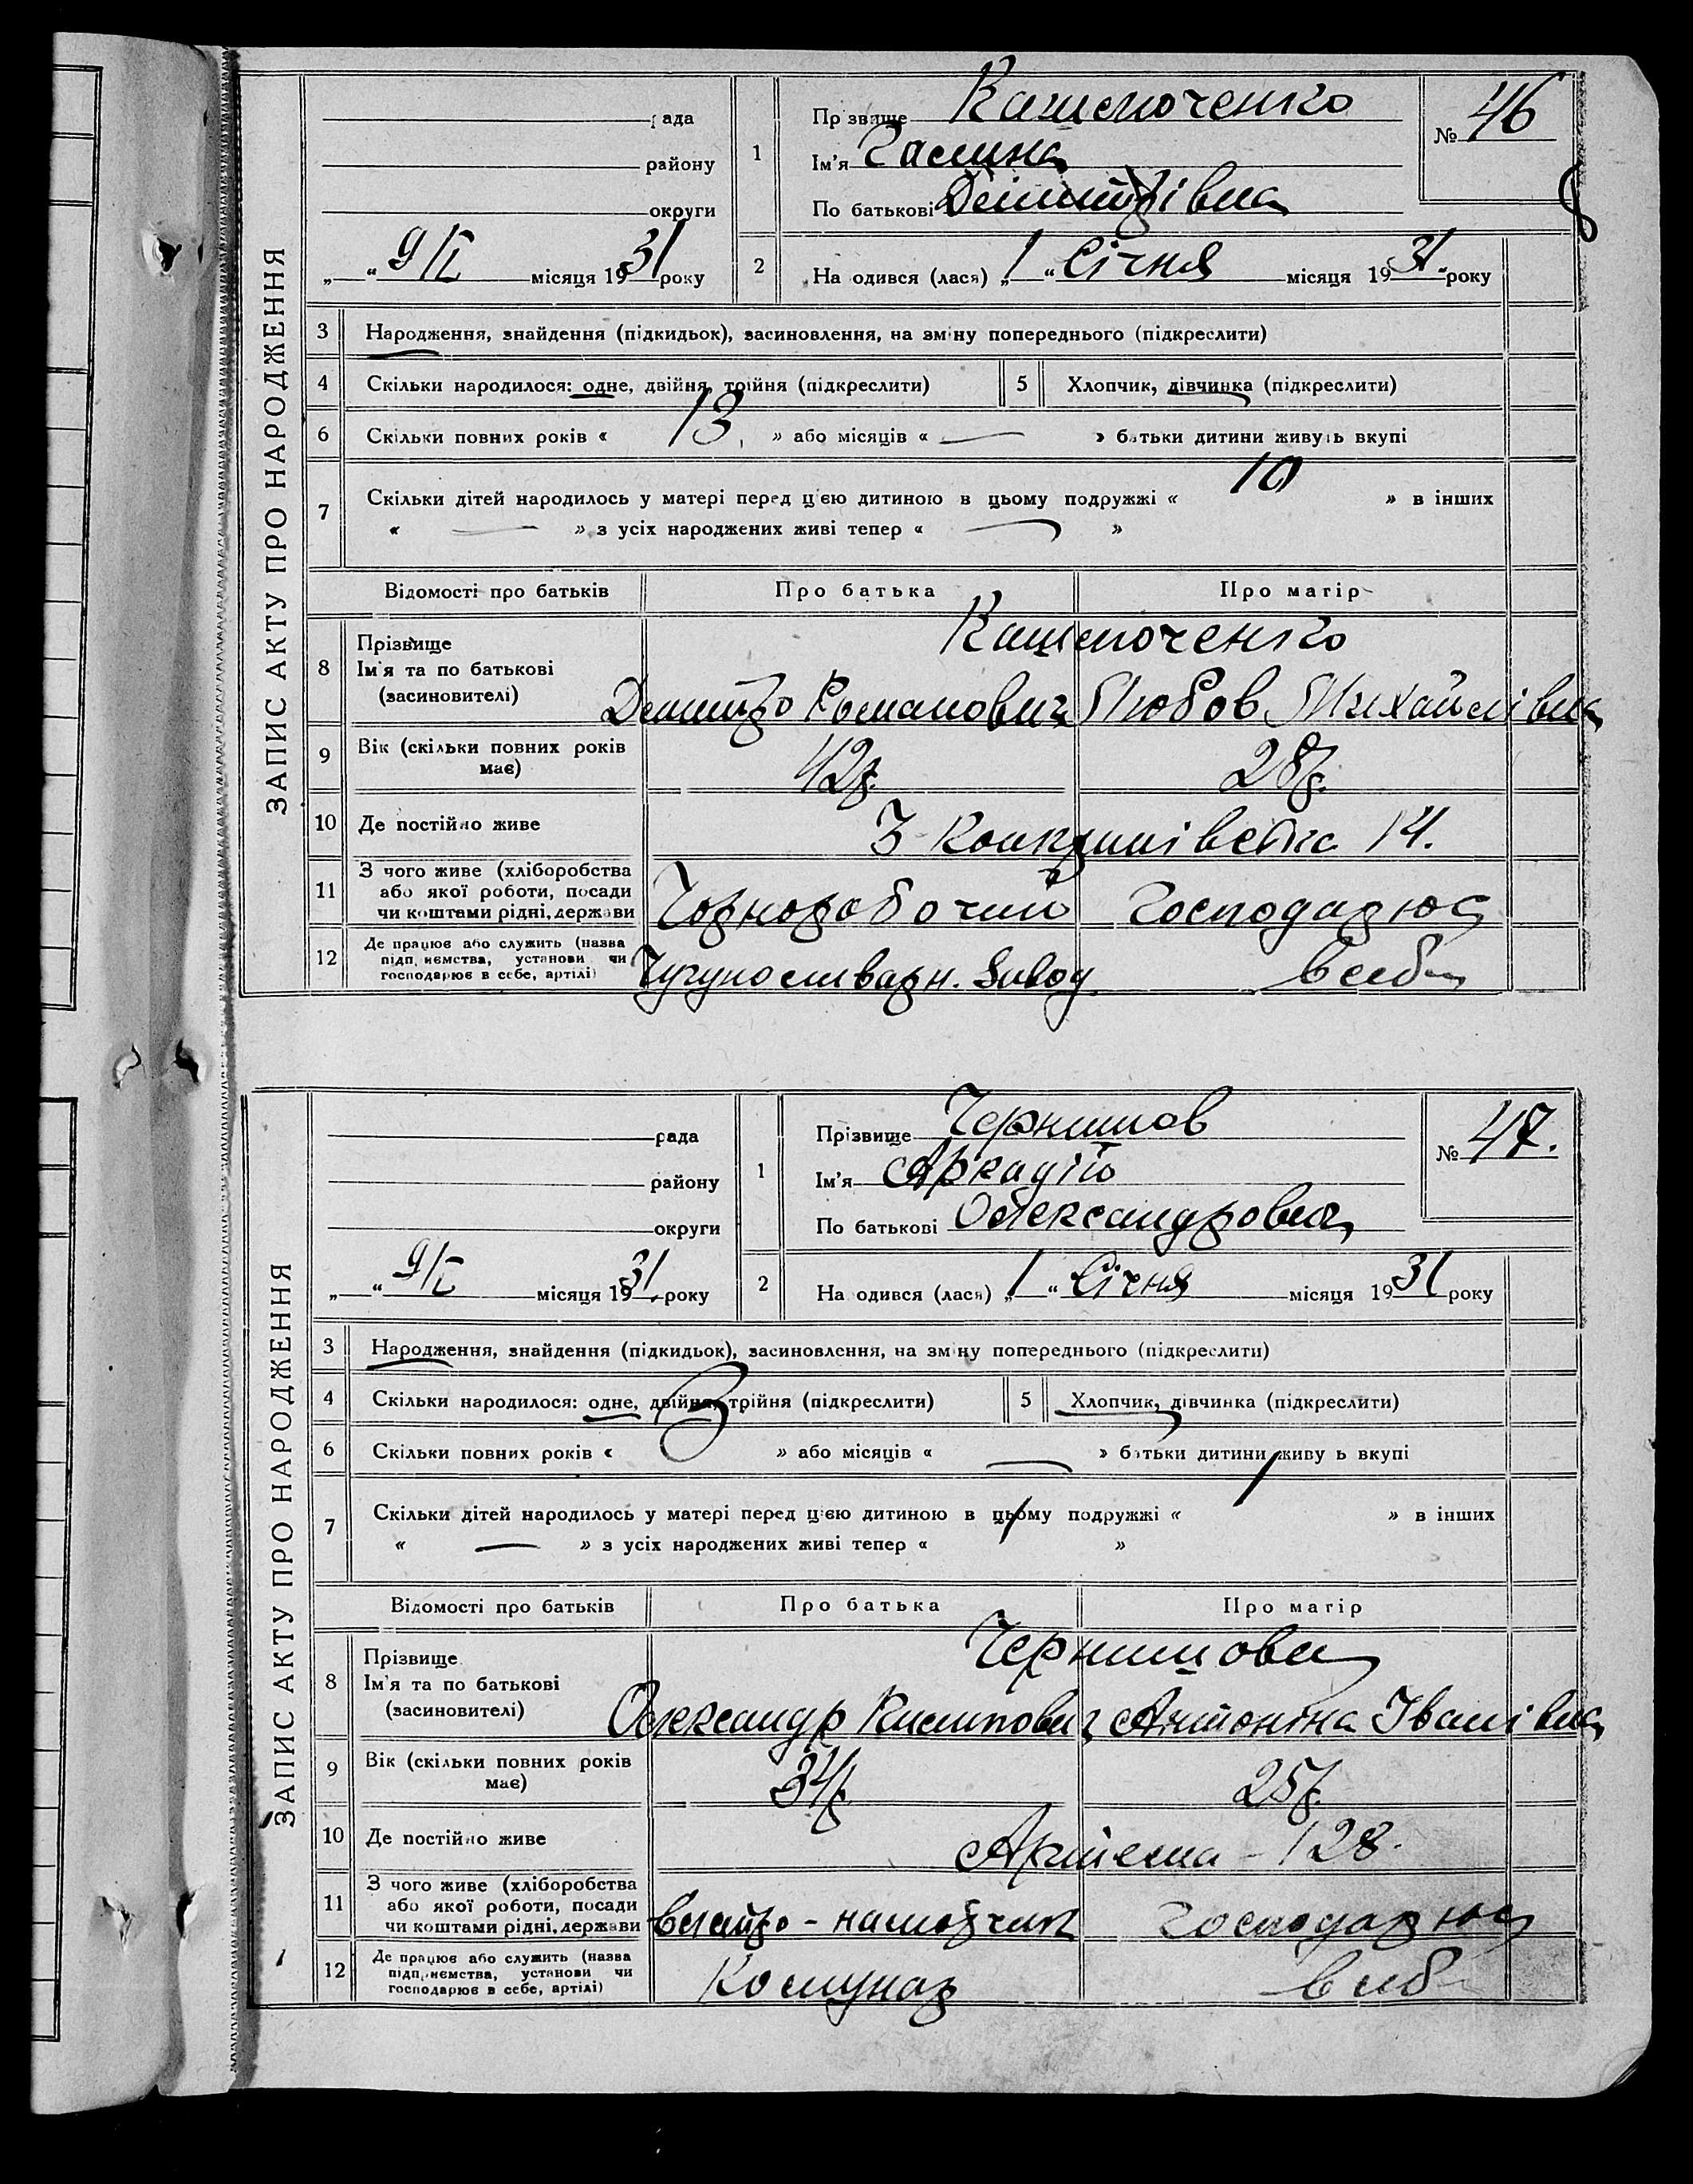 ЗАПИС АКТУ ПРО НАРОДЖЕННЯ
рада
району
округи
„ “ 9/ІІ місяця 1931 року
1
Прізвище Кашпоченко
Ім'я Галина
По батькові Дмитрівна
№ 46
2 Народився (лася) „ 1 “ Січня місяця 1931 року
3 Народження, знайдення (підкидьок), засиновлення, на зміну попереднього (підкреслити)
4 Скільки народилося: одне, двійня, трійня (підкреслити)
5 Хлопчик, дівчинка (підкреслити)
6 Скільки повних років « 13 » або місяців « — » батьки дитини живуть вкупі
7 Скільки дітей народилось у матері перед цією дитиною в цьому подружжі « 10 » в інших
« — » з усіх народжених живі тепер « — »
Відомості про батьків Про батька Про матір
8 Прізвище
Ім'я та по батькові
(засиновителі)
Кашпоченко
Дмитро Романович Любов Михайлівна
9 Вік (скільки повних років має) 42р. 28р.
10 Де постійно живе 14.
11 З чого живе (хліборобства
або якої роботи, посади
чи коштами рідні, держави
Чорноробочий Господарює
12 Де працює або служить (назва
підприємства, установи чи
господарює в себе, артілі)
Чугуноливарн. Завод
ЗАПИС АКТУ ПРО НАРОДЖЕННЯ
рада
району
округи
„ “ 9/ІІ місяця 1931 року
1
Прізвище Чернишов
Ім'я Аркадій
По батькові Олександрович
№ 47.
2 Народився (лася) „ 1 “ Січня місяця 1931 року
3 Народження, знайдення (підкидьок), засиновлення, на зміну попереднього (підкреслити)
4 Скільки народилося: одне, двійня, трійня (підкреслити)
5 Хлопчик, дівчинка (підкреслити)
6 Скільки повних років « 3 » або місяців « — » батьки дитини живуть вкупі
7 Скільки дітей народилось у матері перед цією дитиною в цьому подружжі « 1 » в інших
« — » з усіх народжених живі тепер « 1 »
Відомості про батьків Про батька Про матір
8 Прізвище
Ім'я та по батькові
(засиновителі)
Чернишови
Олександр Антоніна Іванівна
9 Вік (скільки повних років має) 34р. 25р.
10 Де постійно живе Артема - 128.
11 З чого живе (хліборобства
або якої роботи, посади
чи коштами рідні, держави
Господарює
12 Де працює або служить (назва
підприємства, установи чи
господарює в себе, артілі)
Комунар